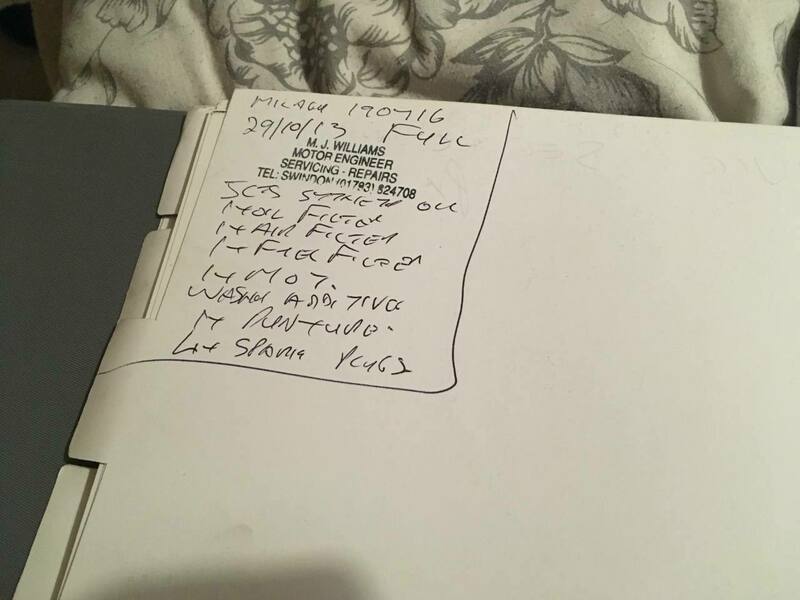 MILAGE 190416
29/10/13 FULL
M. J. WILLIAMS
MOTOR ENGINEER
SERVICING - REPAIRS
TEL: SWINDON (01793) 824708
OIL
1x OIL FILTER
1x AIR FILTER
1x FUEL FILTER
1x MOT.
WASHER ADDITIVE
1x PUNTURE.
4x SPARK PLUGS